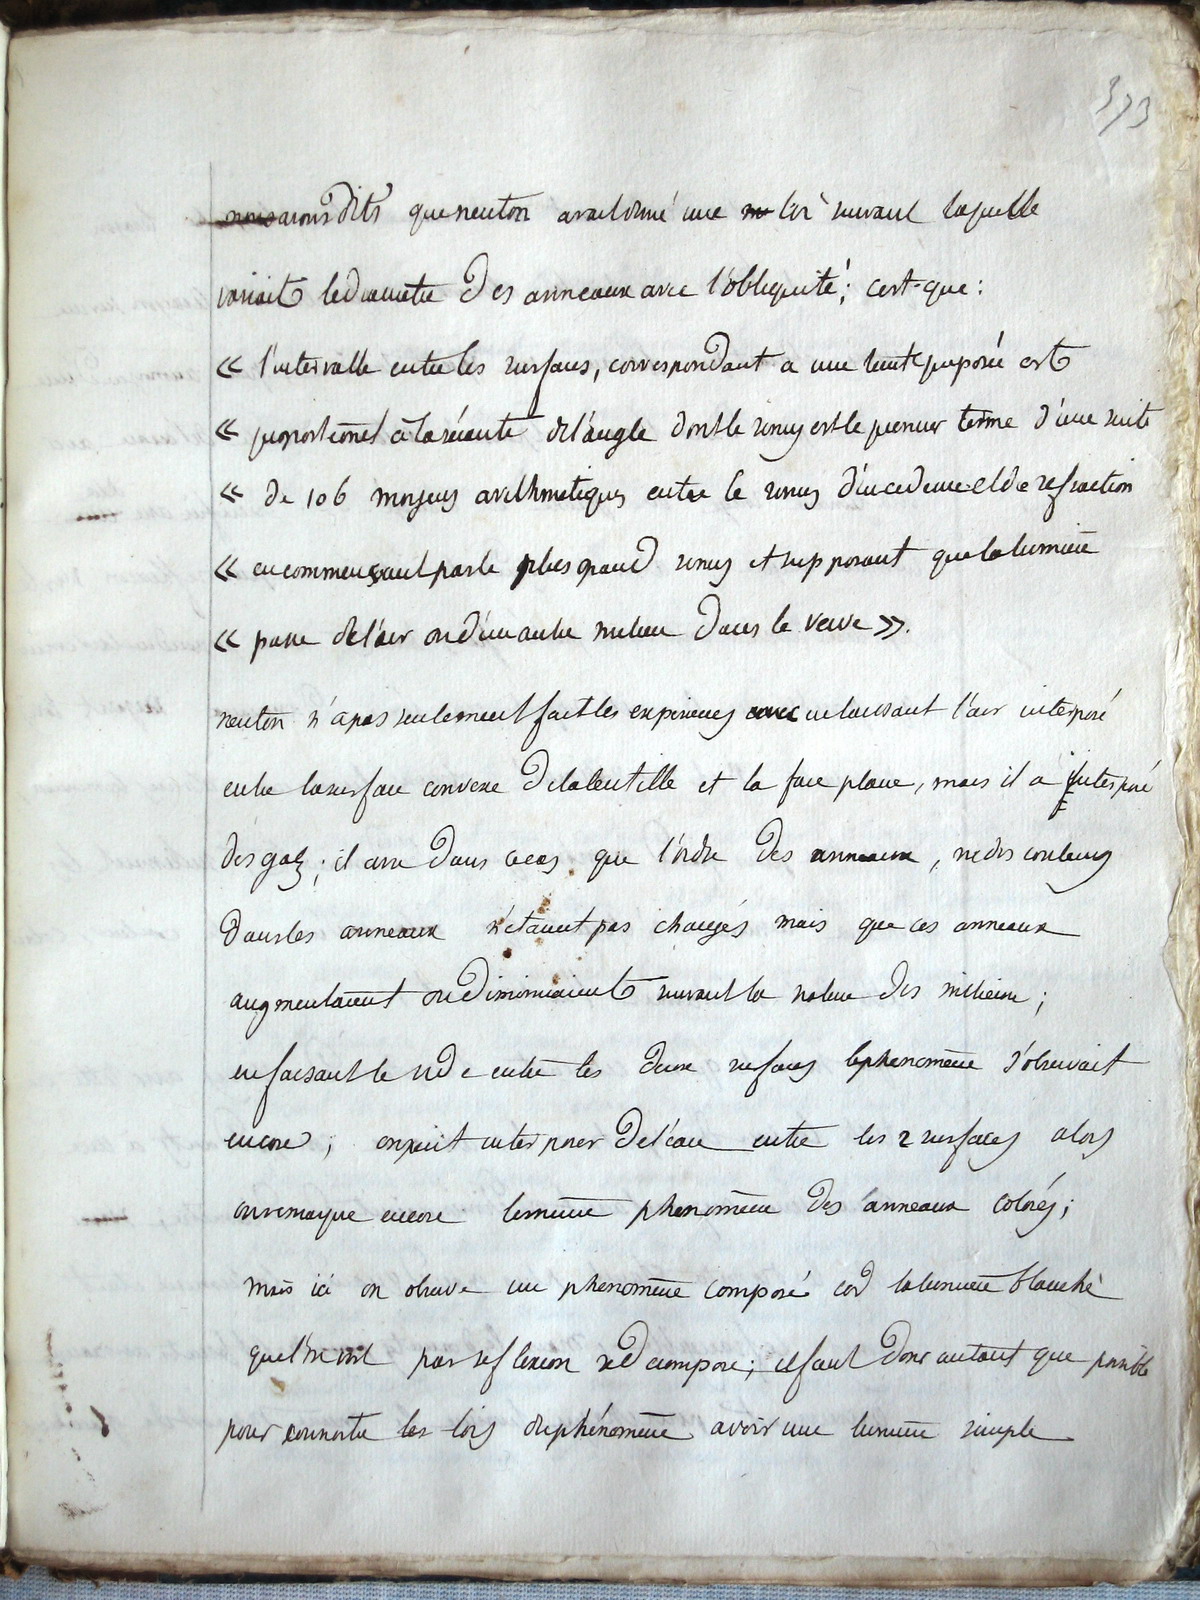 373
nous avons dits que neuton avait donné une loi suivant laquelle
variait le diametre des anneaux avec l'obliquité; c'est-que:
« l'intervalle entre les surfaces, correspondant a une teinte proposée est
« proportionel à la sécante de l'angle dont le sinus est le premier terme d'une suite
« de 106 moyens arithmetiques entre le sinus d'incidence et de refraction
« en commençant par le plus grand sinus et supposant que la lumière
« passe de l'air ou d'un autre milieu dans le verre ».
neuton n'a pas seulement fait les experiences en laissant l'air interposé
entre la surface convexe de la lentille et la face plane, mais il a interposé
des gaz; il a vu dans ce cas que l'ordre des anneaux, ne des couleurs
dans les anneaux n'étaient pas changés mais que ces anneaux
augmentaient ou diminuaient suivant la nature des milieux;
en faisant le vide entre les deux surfaces le phenomène s'observait
encore; on peut interposer de l'eau entre les 2 surfaces alors
on remarque encore le même phenomène des anneaux colorés;
mais ici on observe un phenomène composé car la lumière blanche
que l'on voit par reflexion se decompose; il faut donc autant que possible
pour connoitre les lois du phénomène avoir une lumière simple